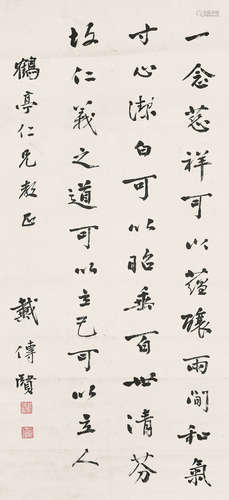 一念慈祥可以蕴酿两间和气
寸心潔白可以昭垂百世清芬
故仁義之道可以立己可以立人
鶴亭仁兄教正
戴傳賢